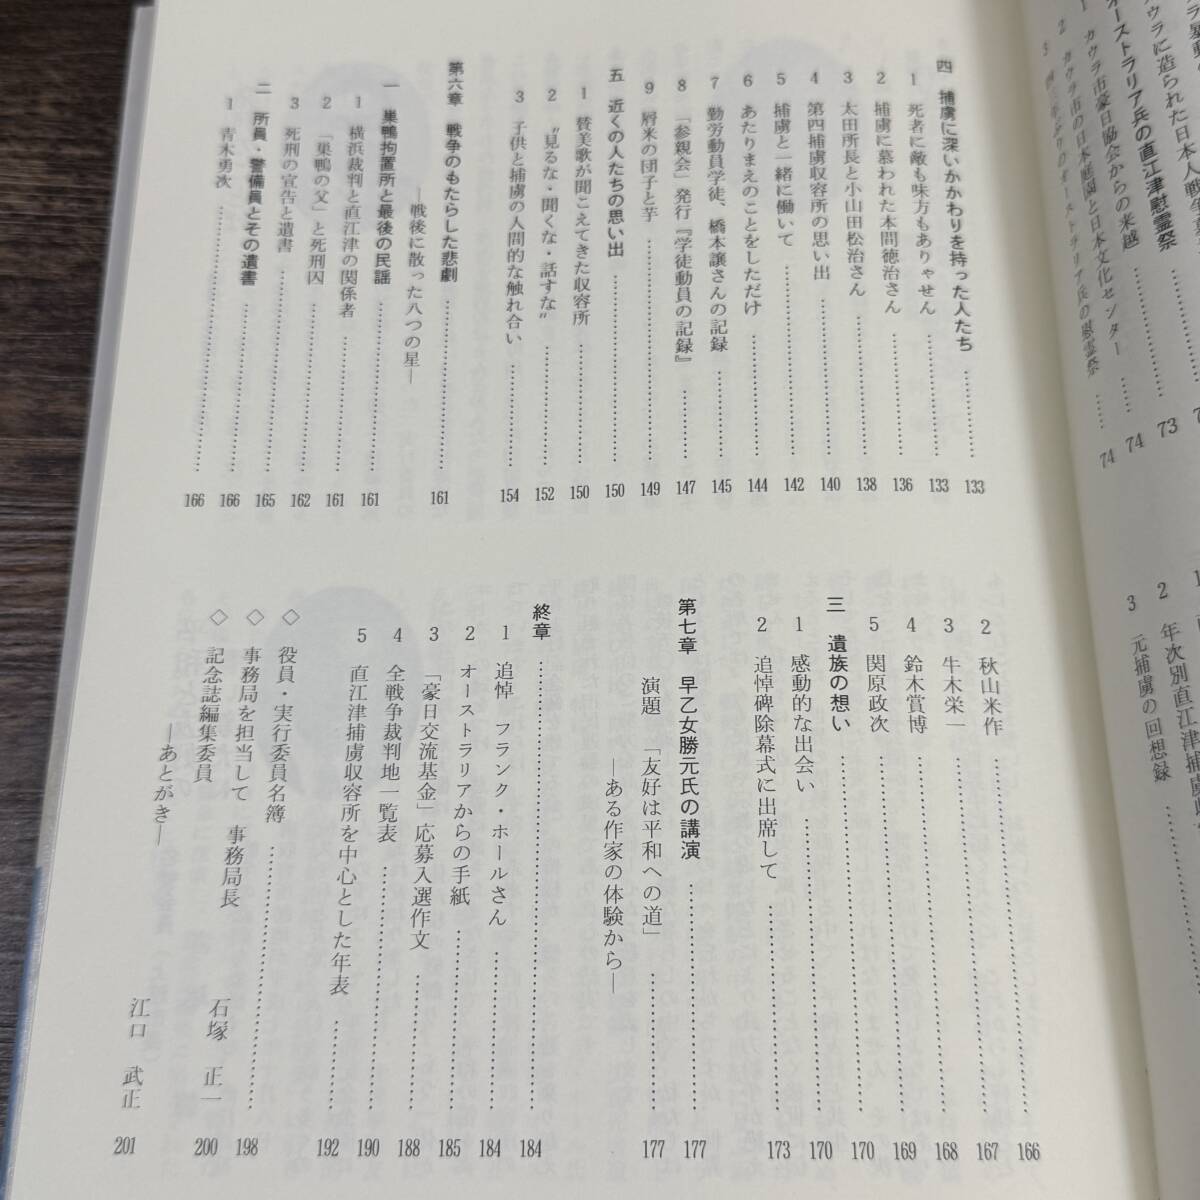 ラ暴動
ウラに造られた日本人戦争
オーストラリア兵の直江津慰霊祭 …… 73
カウラ市豪日協会からの来越 …… 74
2 カウラ市の日本庭園と日本文化センター …… 74
オーストラリア兵の慰霊祭 ……
2 年次別直江津捕虜
3 元捕虜の回想録 ……
四 捕虜に深いかかわりを持った人たち …… 133
1 死者に敵も味方もありゃせん …… 133
2 捕虜に慕われた本間徳治さん …… 136
3 太田所長と小山田松治さん …… 138
4 第四捕虜収容所の思い出 …… 140
5 捕虜と一緒に働いて …… 142
6 あたりまえのことをしただけ …… 144
7 勤労動員学徒、橋本譲さんの記録 …… 145
8 「参親会」発行『学徒動員の記録』 …… 147
9 屑米の団子と芋 …… 149
五 近くの人たちの思い出 …… 150
1 賛美歌が聞こえてきた収容所 …… 150
2 "見るな・聞くな・話すな" …… 152
3 子供と捕虜の人間的な触れ合い …… 154
第六章 戦争のもたらした悲劇 …… 161
―戦後に散った八つの星―
一 巣鴨拘置所と最後の民謡 …… 161
1 横浜裁判と直江津の関係者 …… 161
2 「巣鴨の父」と死刑囚 …… 162
3 死刑の宣告と遺書 …… 165
二 所員・警備員とその遺書 …… 166
1 青木勇次 …… 166
2 秋山米作 …… 166
3 牛木栄一 …… 167
4 鈴木賞博 …… 168
5 関原政次 …… 169
三 遺族の想い …… 170
1 感動的な出会い …… 170
2 追悼碑除幕式に出席して …… 173
第七章 早乙女勝元氏の講演 …… 177
演題 「友好は平和への道」 …… 177
―ある作家の体験から―
終章 …… 184
1 追悼 フランク・ホールさん …… 184
2 オーストラリアからの手紙 …… 185
3 「豪日交流基金」応募入選作文 …… 188
4 全戦争裁判地一覧表 …… 190
5 直江津捕虜収容所を中心とした年表 …… 192
◇ 役員・実行委員名簿 …… 198
◇ 事務局を担当して 事務局長 石塚 正一 200
◇ 記念誌編集委員 江口 武正 201
―あとがき―